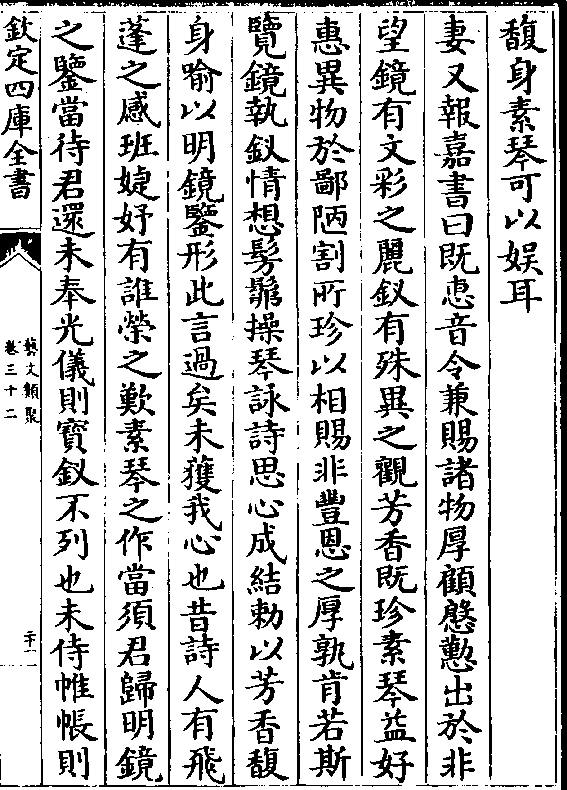 馥身素琴可以娱耳
妻又報嘉書曰既恵音令兼賜諸物厚顧慇懃出於非
望鏡有文彩之麗釵有殊異之觀芳香既珍素琴益好
惠異物於鄙陋割所珍以相賜非豐恩之厚孰肯若斯
覽鏡執釵情想髣髴操琴詠詩思心成結勅以芳香馥
身喻以明鏡鑒形此言過矣未獲我心也昔詩人有飛
蓬之感班婕妤有誰榮之歎素琴之作當須君歸明鏡
之鑒當待君還未奉光儀則寳釵不列也未侍帷帳則
欽定四庫全書
藝文類聚
卷三十二
二十一